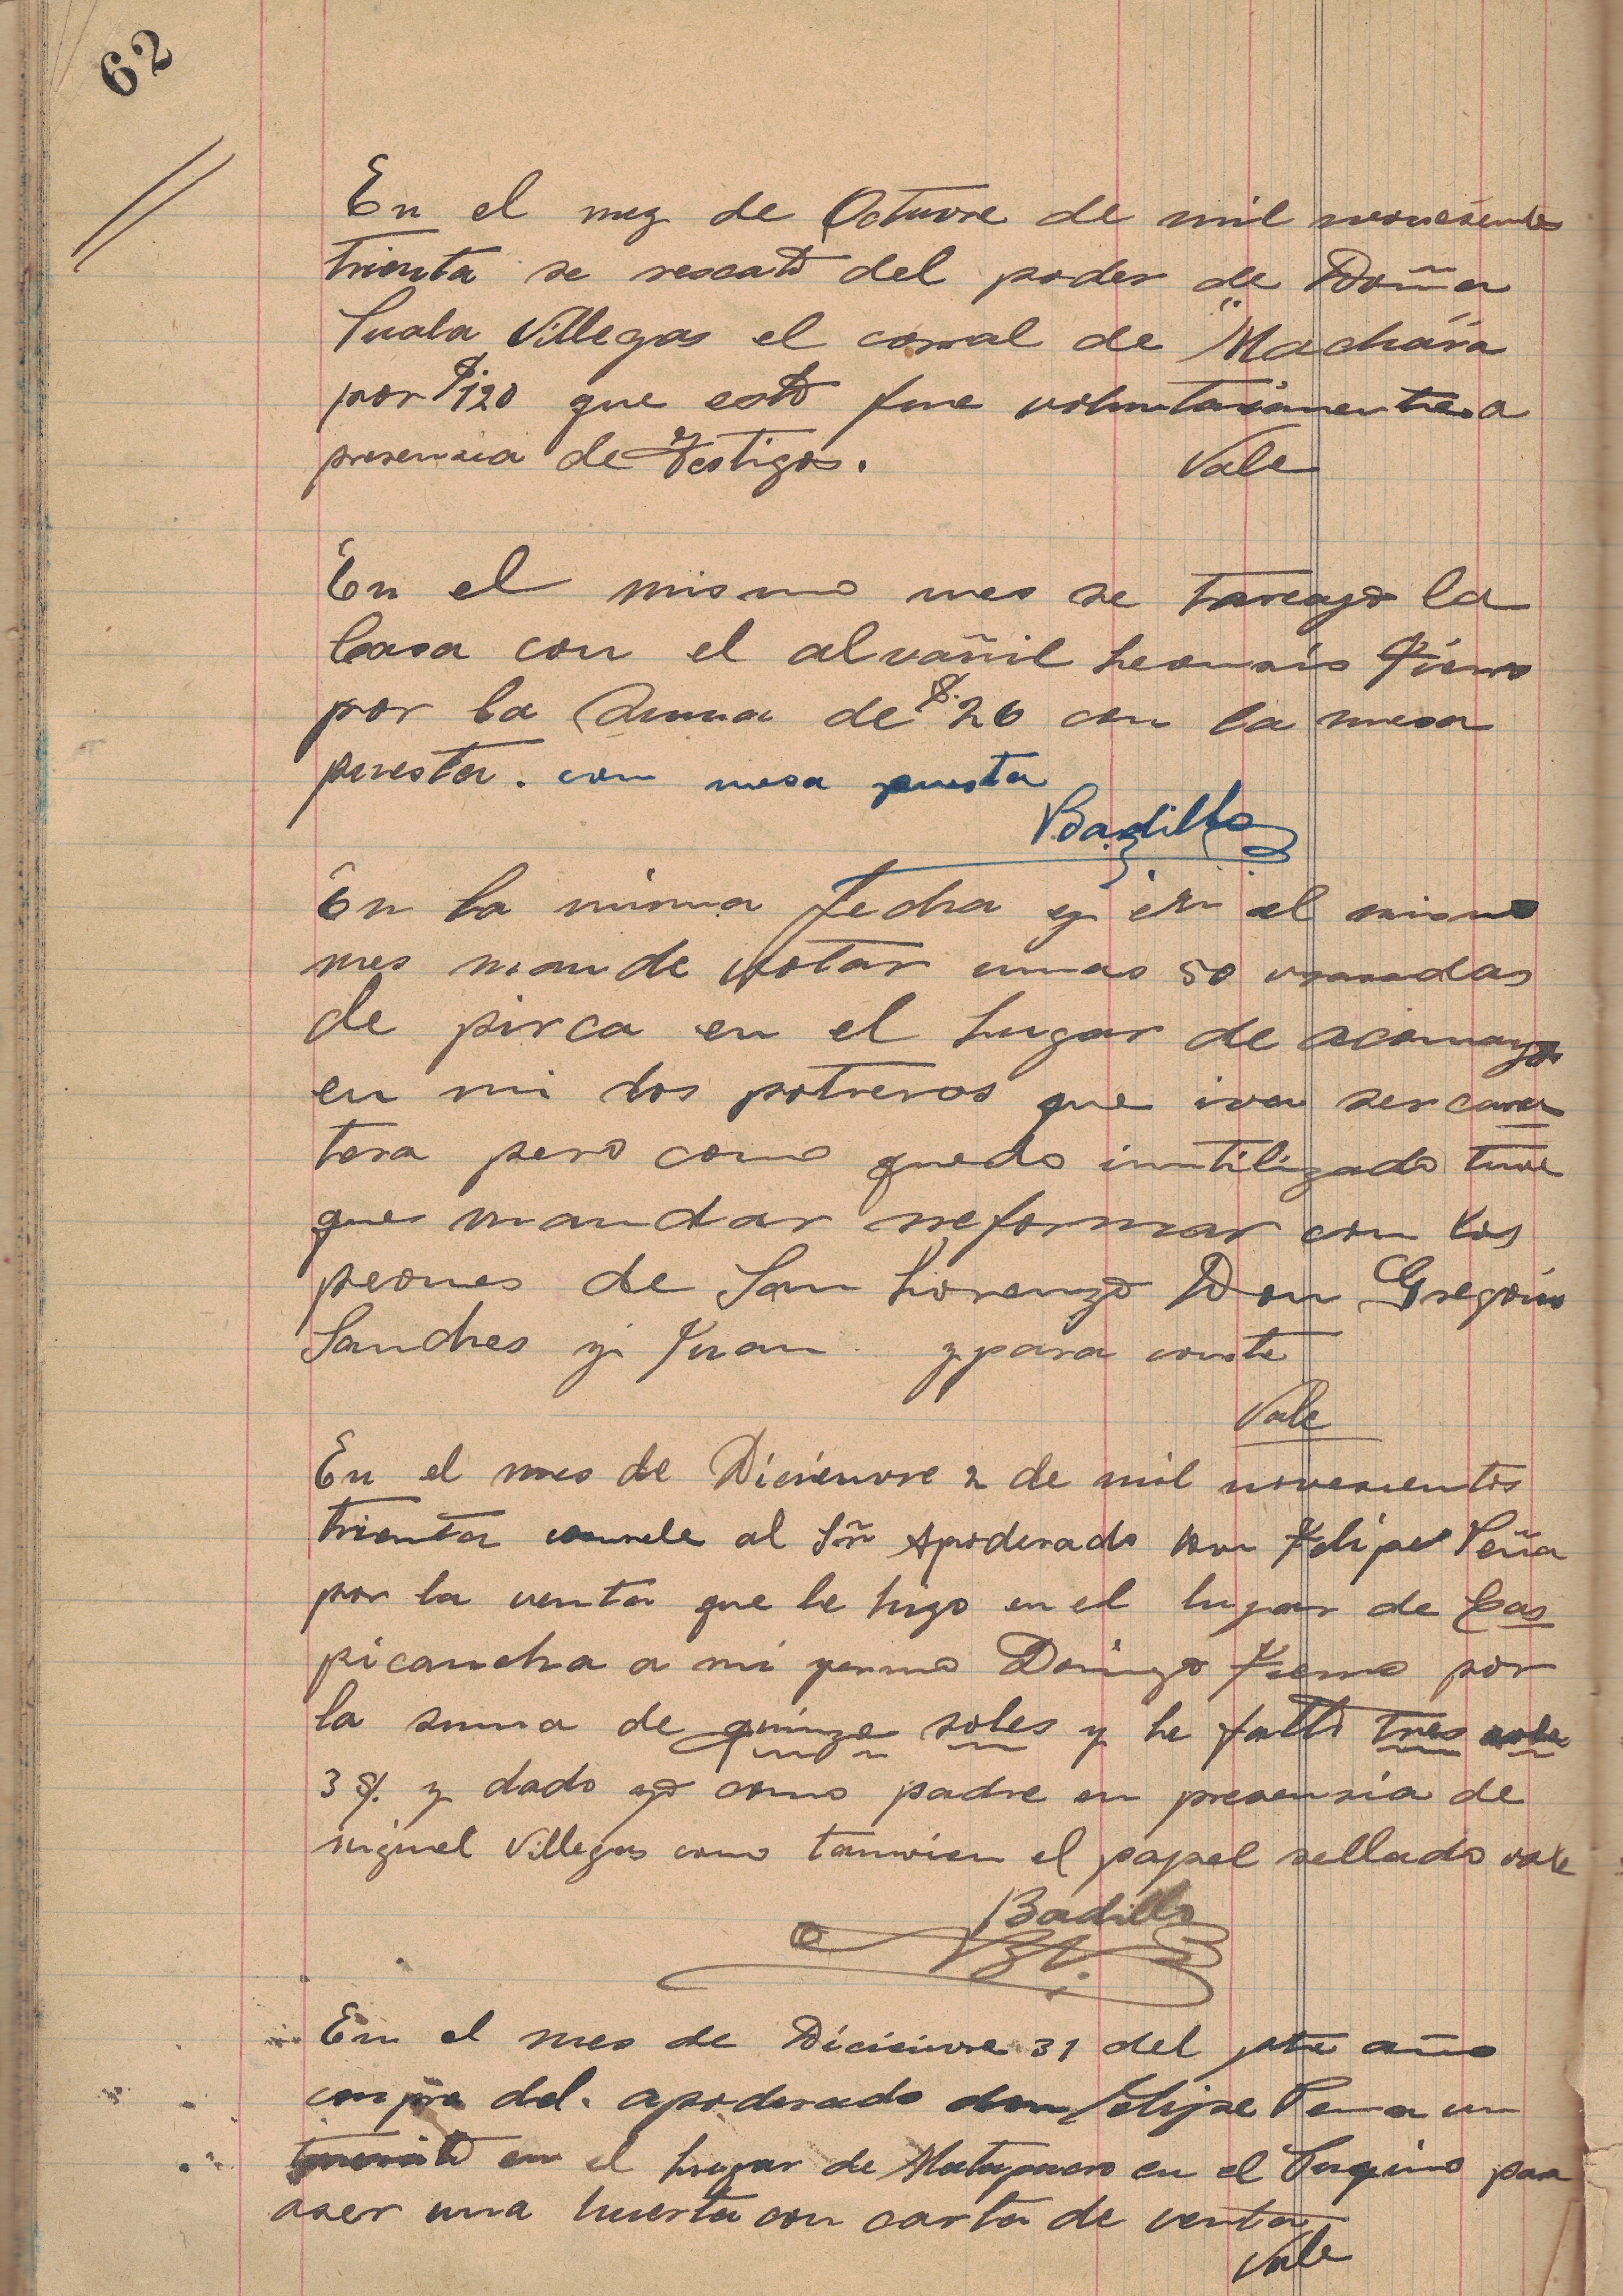 62
En el mez de Octuvre de mil novesientos
trienta se rescató del poder de Doña
Suala Villegas el corral de "Machára
por $.120 que estó fue voluntariamente a
presencia de Testigos. Vale
En el mismo mes se tareajo la
Casa con el alvañil leonsio Fierro
por la suma de $.26 con la mesa
puesta. con mesa puesta
Badillo
En la misma fecha y en el mismo
mes mande votar unas 50 vrasadas
de pirca en el lugar de acomayo
en mi dos potreros que iva ser carre
tera pero como quedo inutilizado tuve
que mandar reformar con los
peones de San Lorenzo Don Gregorio
Sanches y Juan y para conste
Vale
En el mes de Dicienvre 2 de mil novesientos
trienta al Sñr Apoderado Don Felipe Peña
por la venta que le hizo en el lugar de Cas
picancha a mi yerno Domingo Fierro por
la suma de quinze soles y le faltó tres soles
3 $. y dado yo como padre en presensia de
miguel Villegas como tamvien el papel sellado vale
Badillo
En el mes de Dicienvre 31 del pte año
compra del. apoderado don Felipe Pena un
en el lugar de en el para
aser una huerta con carta de venta
Vale